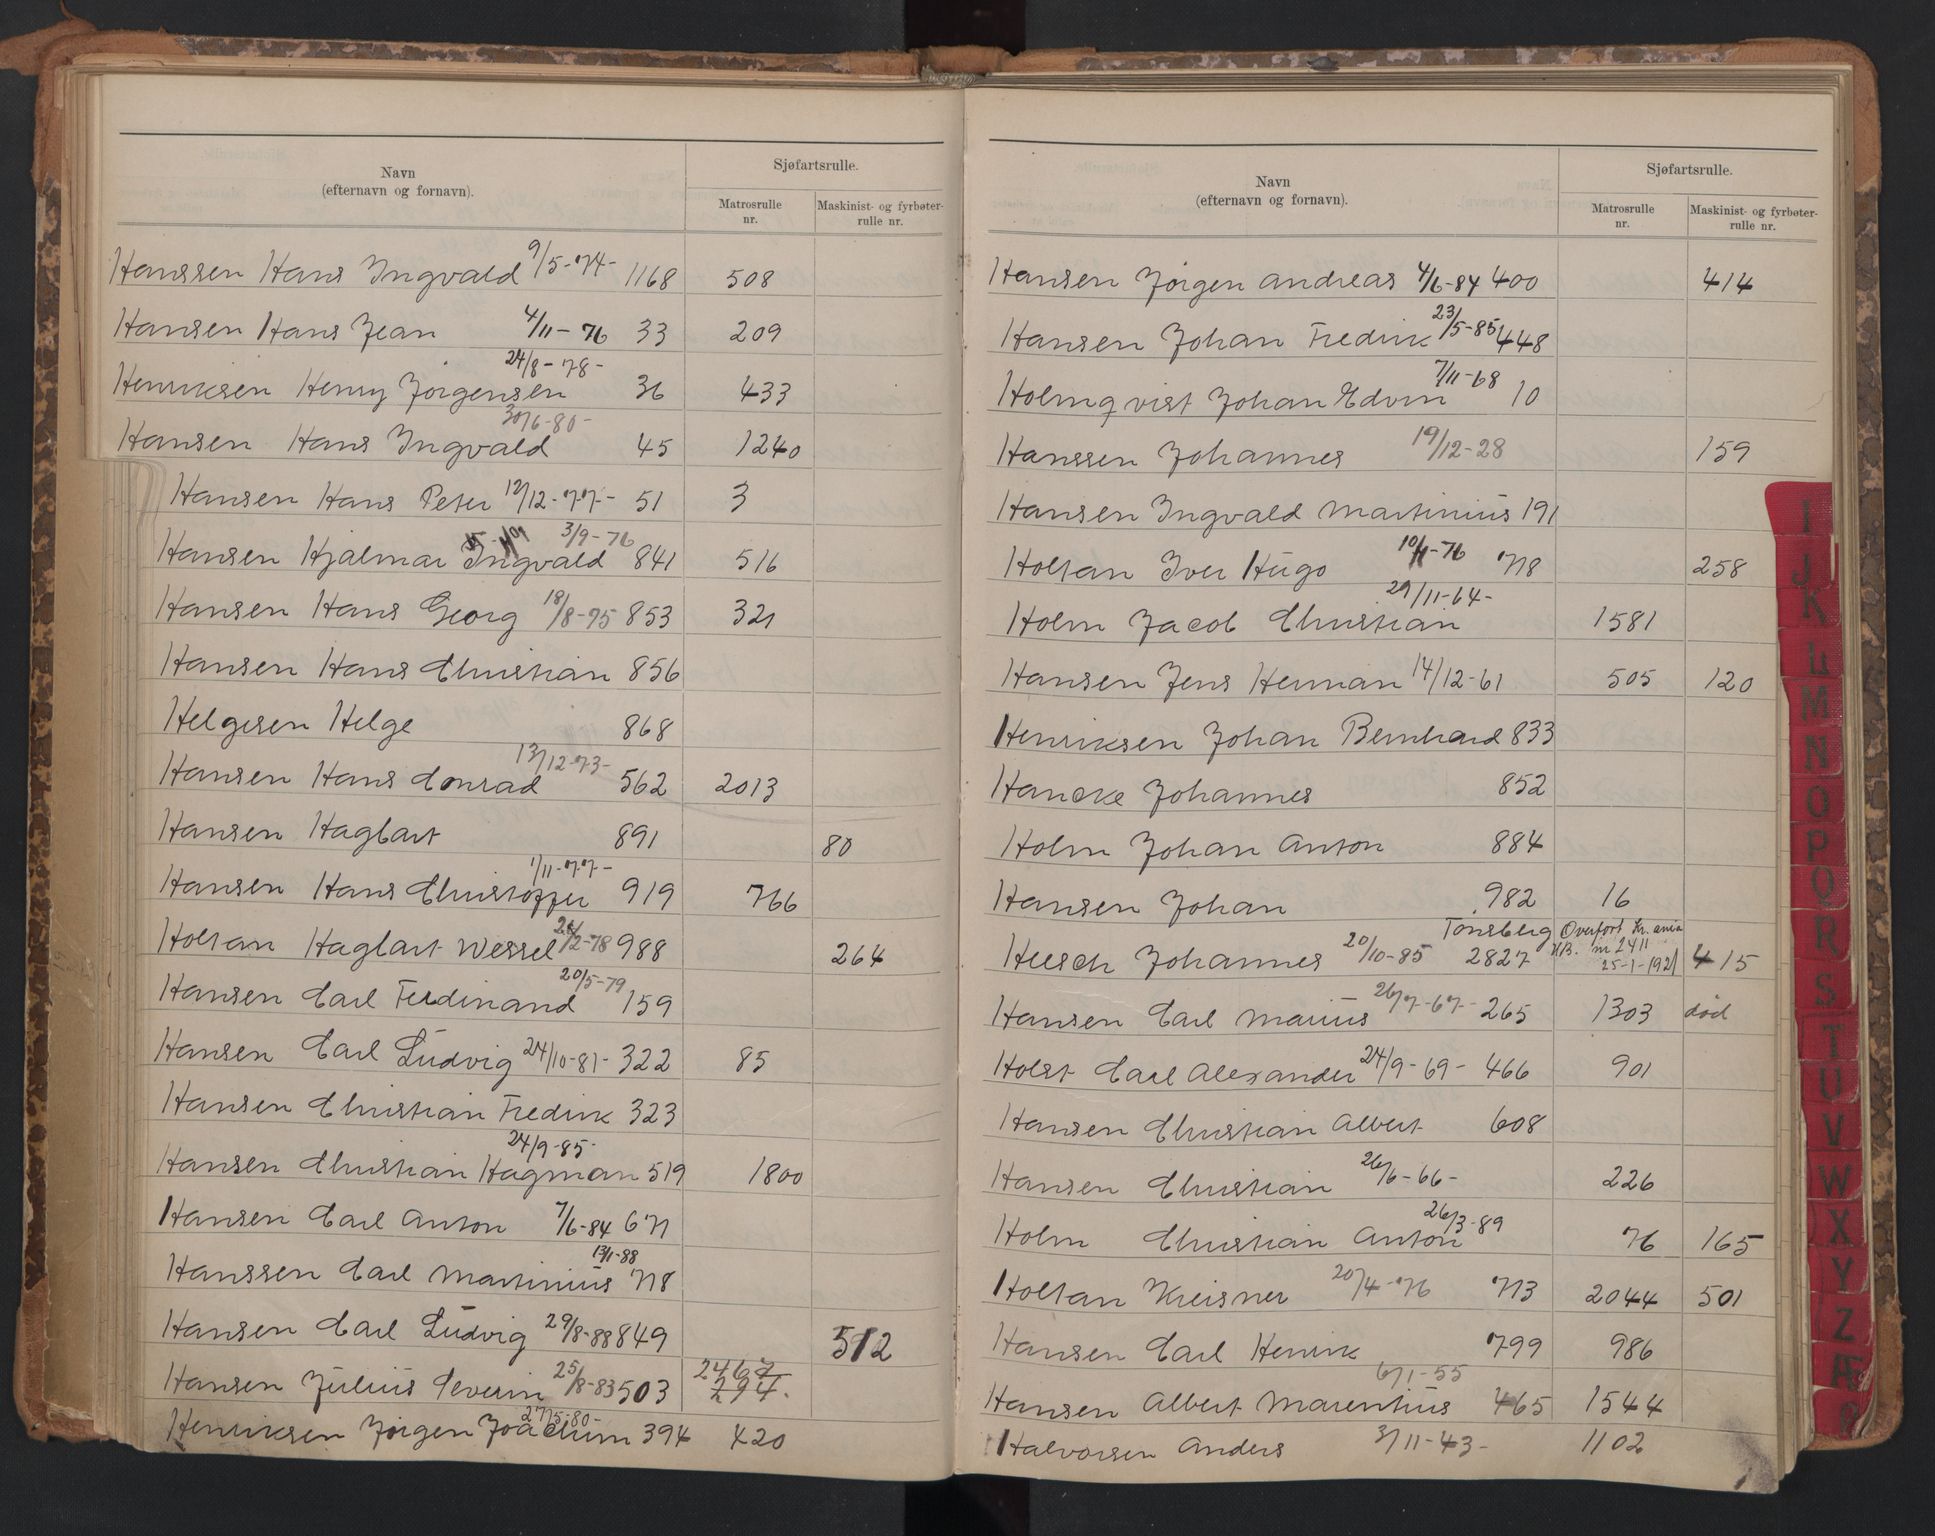 Navn
(efternavn og fornavn).
Sjøfartsrulle.
Matrosrulle nr.
Maskinist- og fyrbøter-rulle nr.
Hanssen Hans Ingvald 9/5-74- 1168 508
Hansen Hans Jean 4/11-76 33 209
Henriksen Henry Jörgensen 24/8-78- 36 433
Hansen Hans Ingvald 30/6-80- 45 1240
Hansen Hans Peter 12/12-77- 51 3
Hansen Hjalmar Ingvald 3/9-76 841 516
Hansen Hans Georg 18/8-75 853 321
Hansen Hans Christian 856
Helgesen Helge 868
Hansen Hans Conrad 13/12-73- 562 2013
Hansen Hagbart 891 80
Hansen Hans Christoffer 1/11-77- 919 766
Holtan Hagbart Wessel 24/2-78 988 264
Hansen Carl Ferdinand 20/5-79 159
Hansen Carl Ludvig 24/10-81- 322 85
Hansen Christian Fredrik 323
Hansen Christian Hagman 24/9-85- 519 1800
Hansen Carl Anton 7/6-84 671
Hanssen Carl Martinius 13/1-88 778
Hansen Carl Ludvig 29/8-88 849 512
Hansen Julius Severin 25/8-83 503 2467 294.
Henriksen Jörgen Joachim 27/5-80- 394 420
Navn
(efternavn og fornavn).
Sjøfartsrulle.
Matrosrulle nr.
Maskinist- og fyrbøter-rulle nr.
Hansen Jörgen Andreas 4/6-84 400 414
Hansen Johan Fredrik 23/5-85 448
Holmqvist Johan Edvin 7/11-68 10
Hanssen Johannes 19/12-28 159
Hansen Ingvald Martinius 191
Holtan Iver Hugo 10/11-76 778 258
Holm Jacob Christian 29/11-64- 1581
Hansen Jens Herman 14/12-61 505 120
Henriksen Johan Bernhard 833
Hancke Johannes 852
Holm Johan Anton 884
Hansen Johan 982 16
Hesch Johannes 20/10-85 Tønsberg 2827 Overført Kr.ania H.B. nr 2411 25-1-1921 415
Hansen Carl Marius 26/7-67- 265 1303 død
Holst Carl Alexander 24/9-69- 466 901
Hansen Christian Albert 608
Hansen Christian 26/6-66- 226
Holm Christian Anton 26/3-89 76 165
Holtan Kreisner 20/4-76 773 2044 501
Hansen Carl Henrik 799 986
Hansen Albert Marentius 6/1-55 465 1544
Halvorsen Anders 3/11-43- 1102
I
J
K
L
M
N
O
P
Q
R
S
T
U
V
W
X
Y
Z
Æ
Ø